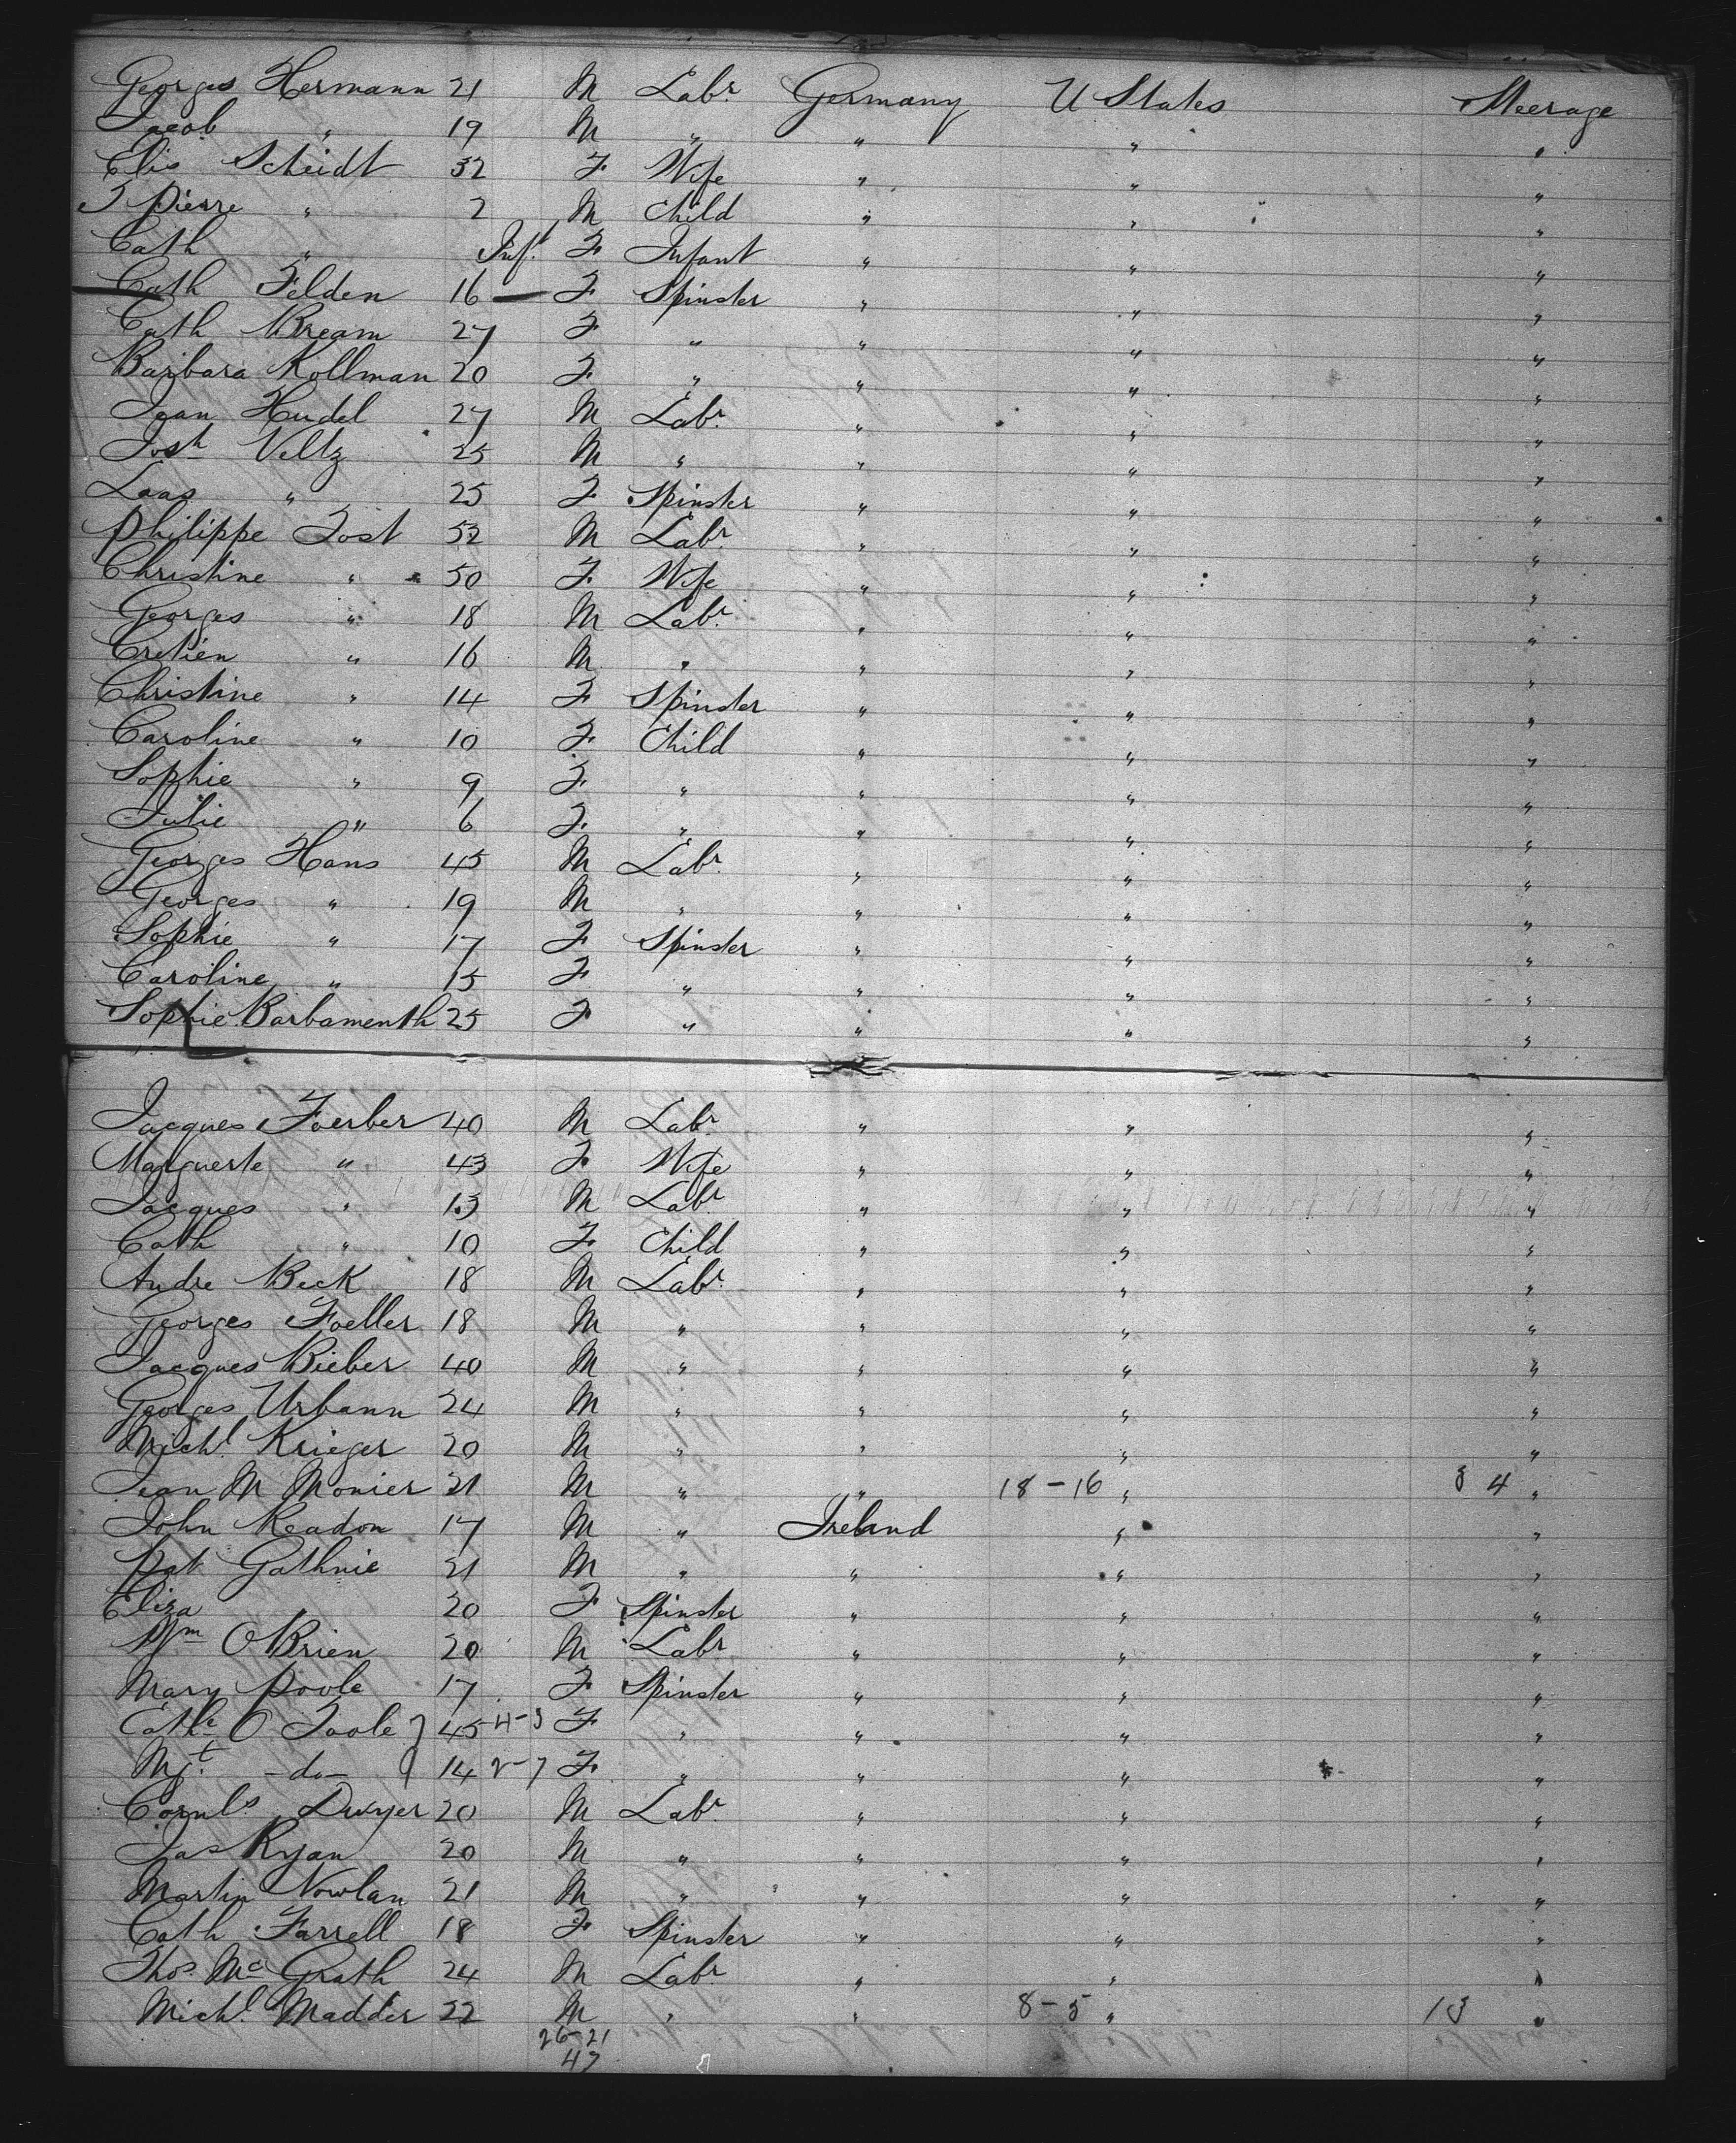 Georges Hermann 21 M Labr Germany U States Steerage
Jacob " 19 M " " " "
Elis Scheidt 32 F Wife " " "
J Pierre " 2 M Child " " "
Cath " Inft F Infant " " "
Cath Felden 16 — F Spinster " " "
Cath Bream 27 F " " " "
Barbara Kollman 20 F " " " "
Jean Hudel 27 M Labr " " "
Josh Veltz 25 M " " " "
Laas " 25 F Spinster " " "
Philippe Jost 52 M Labr " " "
Christine " 50 F Wife " " "
Georges " 18 M Labr " " "
Cretien " 16 M " " " "
Christine " 14 F Spinster " " "
Caroline " 10 F Child " " "
Sophie " 9 F " " " "
Julie " 6 F " " " "
Georges Hans 45 M Labr " " "
Georges " 19 M " " " "
Sophie " 17 F Spinster " " "
Caroline " 15 F " " " "
Sophie Barbamenth 25 F " " " "
Jacques Foerber 40 M Labr " " "
Marguerte " 43 F Wife " " "
Jacques " 13 M Labr " " "
Cath " 10 F Child " " "
Andre Beck 18 M Labr " " "
Georges Foeller 18 M " " " "
Jacques Bieber 40 M " " " "
Georges Urbann 24 M " " " "
Michl Krieger 20 M " " " "
Jean M Monier 21 M " " 18-16 " 34 "
John Readon 17 M " Ireland " "
Pat Guthnie 21 M " " " "
Eliza 20 F Spinster " " "
Wm O Brien 20 M Labr " " "
Mary Poole 17 F Spinster " " "
Cathe O Toole } 45 4-3 F " " " "
Mgt -do- } 14 2-7 F " " " "
Cornls Dwyer 20 M Labr " " "
Jas Ryan 20 M " " " "
Martin Nowlan 21 M " " " "
Cath Farrell 18 F Spinster " " "
Thos Mc Grath 24 M Labr " " "
Michl Madder 22 M " " 8-5 " 13 "
26-21
47